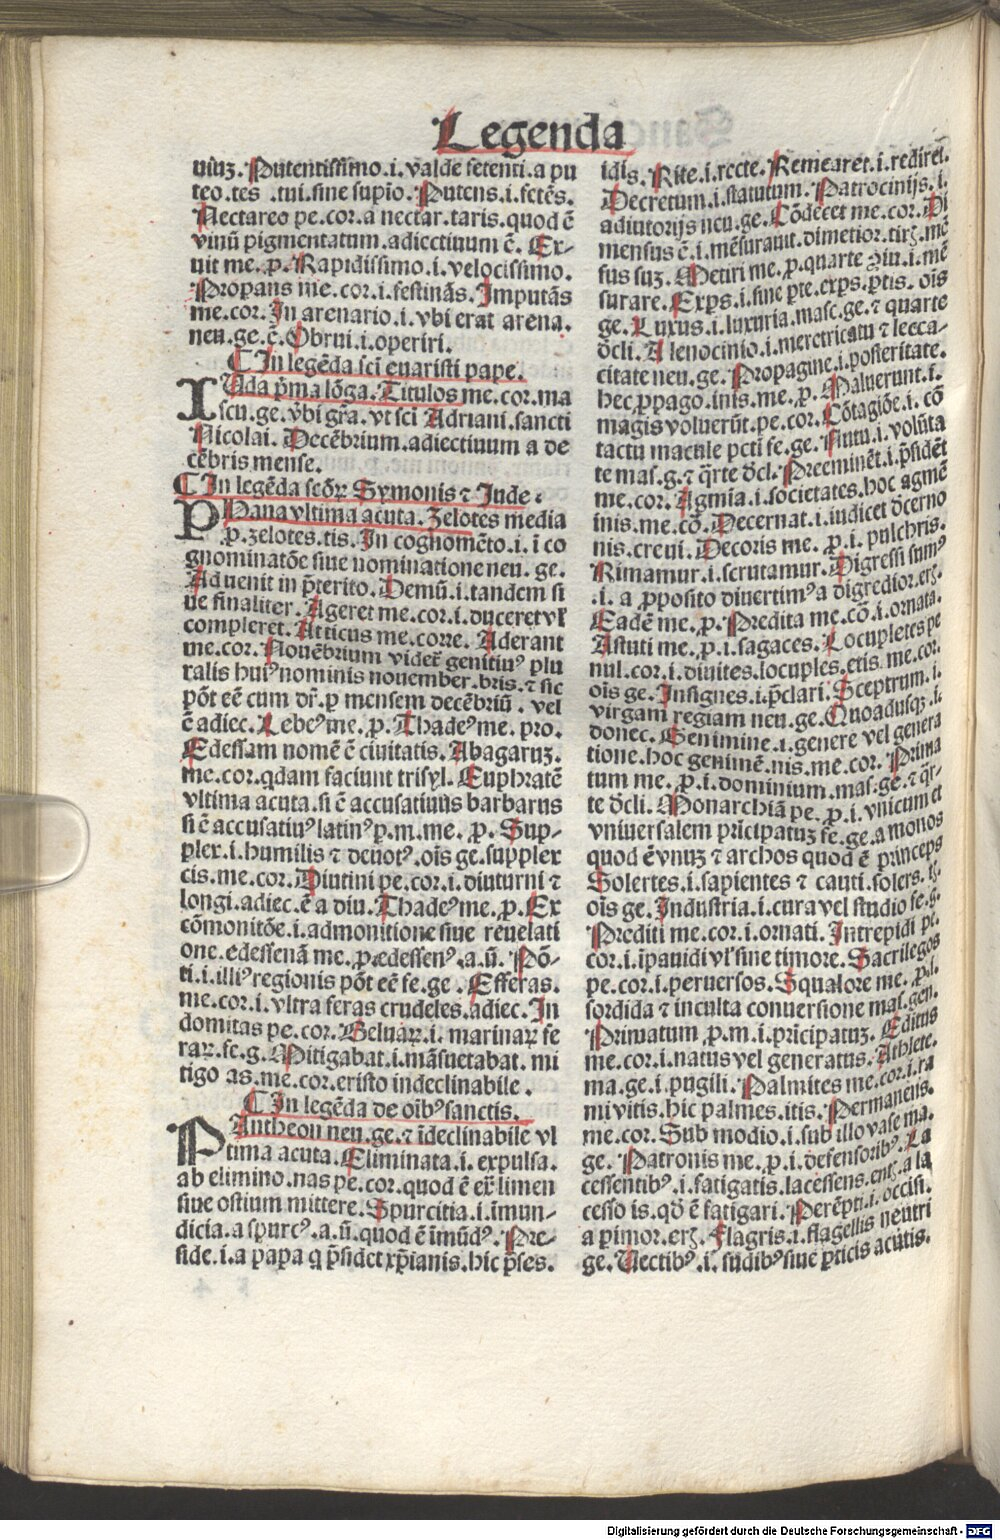 Legenda
uiuʒ. Putentissimo.i. valde fetenti.a pu
teo.tes .tui.sine supīo. Putens.i.fetēs.
Nectareo pe.cor.a nectar.taris.quod ē
vinū pigmentatum.adiectiuum ē. Ex-
uit me.p. Rapidissimo.i.velocissimo.
Properans me.cor.i.festinās. Imputās
me.cor. In arenario.i.vbi erat arena.
neu.ge.ē. Obrui.i.operiri.
In legēda sci euaristi pape.
Vda pma lōga. Titulos me.cor.ma
scu.ge.vbi gra.vt sci Adriani.sancti
Nicolai. Decēbrium.adiectiuum a de
cēbris mense.
In legēda scōꝝ Symonis ⁊ Jude.
Phana vltima acuta. Zelotes media
.p.zelotes.tis. In cognomēto.i.i co
gnominatōe siue nominatione neu.ge.
Aduenit in pterito. Demū.i.tandem si
ue finaliter. Ageret me.cor.i.duceret vl
compleret. Atticus me.corre. Aderant
me.cor. Nouēbrium vider genitiuꝰ plu
ralis huiꝰ nominis nouember.bris.⁊ sic
pōt eē cum dr.p mensem decēbriū. vel
ē adiec. Lebeꝰ me.p. Thadeꝰ me.pro.
Edessam nomē ē ciuitatis. Abagaruʒ.
me.cor.qdam faciunt trisyl. Euphratē
vltima acuta.si ē accusatiuus barbarus
si ē accusatiuꝰ latinꝰ p.m.me.p. Sup-
plex.i.humilis ⁊ deuotꝰ.oīs ge.supplex
cis.me.cor. Diutini pe.cor.i.diuturni ⁊
longi.adiec.ē a diu. Thadeꝰ me.p. Ex
cōmonitōe.i.admonitione siue reuelati
one.edessenā me.p.edessenꝰ.a.ū. Pō-
ti.i.illiꝰ regionis pōt eē fe.ge. Efferas.
me.cor.i.vltra feras crudeles.adiec. In
domitas pe.cor. Beluaꝝ.i.marinaꝝ fe
raꝝ.fe.g. Mitigabat.i.māsuetabat.mi
tigo as.me.cor.cristo indeclinabile.
In legēda de oībꝰ sanctis.
Pantheon neu.ge.⁊ īdeclinabile vl
tima acuta. Eliminata.i.expulsa.
ab elimino.nas pe.cor.quod ē ex limen
siue ostium mittere. Spurcitia.i.īmun-
dicia.a spurcꝰ.a.ū.quod ē imūdꝰ. Pre-
side.i.a papa q psidet xpianis.hic pses.
idis. Rite.i.recte. Remearet.i.rediret.
Decretum.i.statutum. Patrocinijs.i.
adiutorijs neu.ge. Cōdecet me.cor. Di
mensus ē.i.mēsurauit.dimetior.tirʒ.mē
sus suʒ. Metiri me.p.quarte ʒiu.i.mē
surare. Expers.i.sine pte.exps.ptis.oīs
ge. Luxus.i.luxuria.masc.ge.⁊ quarte
dcli. A lenocinio.i.meretricatu ⁊ lecca-
citate neu.ge. Propagine.i.posteritate.
hec ppago.inis.me.p. Maluerunt.i.
magis voluerūt.pe.cor. Cōtagiōe.i.cō
tactu macule pcti fe.ge. Nutu.i.volūta
te mas.g.⁊ qrte dcl. Preeminēt.i.psidēt
me.cor. Agmia.i.societates.hoc agmē
inis.me.cō. Decernat.i.iudicet dcerno
nis.creui. Decoris me.p.i.pulchris.
Rimamur.i.scrutamur. Digressi sumꝰ
.i.a pposito diuertimꝰ a digredior.erʒ.
Eadē me.p. Predita me.cō.i.ornata.
Astuti me.p.i.sagaces. Locupletes pe
nul.cor.i.diuites.locuples.etis.me.cor.
oīs ge. Insignes.i.pclari. Sceptrum.i.
virgam regiam neu.ge. Quoadusqʒ.i.
donec. Genimine.i.genere vel genera
tione.hoc genimē.nis.me.cor. Prima
tum me.p.i.dominium.mas.ge.⁊ qr-
te dcli. Monarchiā pe.p.i.vnicum et
vniuersalem pricipatuʒ fe.ge.a monos
quod ē vnuʒ ⁊ archos quod ē princeps
Solertes.i.sapientes ⁊ cauti.solers.
oīs ge. Industria.i.cura vel studio fe.g.
Prediti me.cor.i.ornati. Intrepidi pe.
cor.i.īpauidi vl sine timore. Sacrilegos
pe.cor.i.peruersos. Squalore me.p.i.
sordida ⁊ inculta conuersione mas.gen.
Primatum p.m.i.pricipatuʒ. Editus
me.cor.i.natus vel generatus. Athlete.
ma.ge.i.pugili. Palmites me.cor.i.ra
mi vitis.hic palmes.itis. Permanens.
me.cor. Sub modio.i.sub illo vase ma.
ge. Patronis me.p.i.defensoribꝰ. La
cessentibꝰ.i.fatigatis.lacessens.entʒ.a la
cesso is.qd ē fatigari. Perēpti.i.occisi.
a perimor.erʒ. Flagris.i.flagellis neutri
ge. Uectibꝰ.i.sudibꝰ siue pticis acutis.
Digitalisierung gefördert durch die Deutsche Forschungsgemeinschaft - DFG